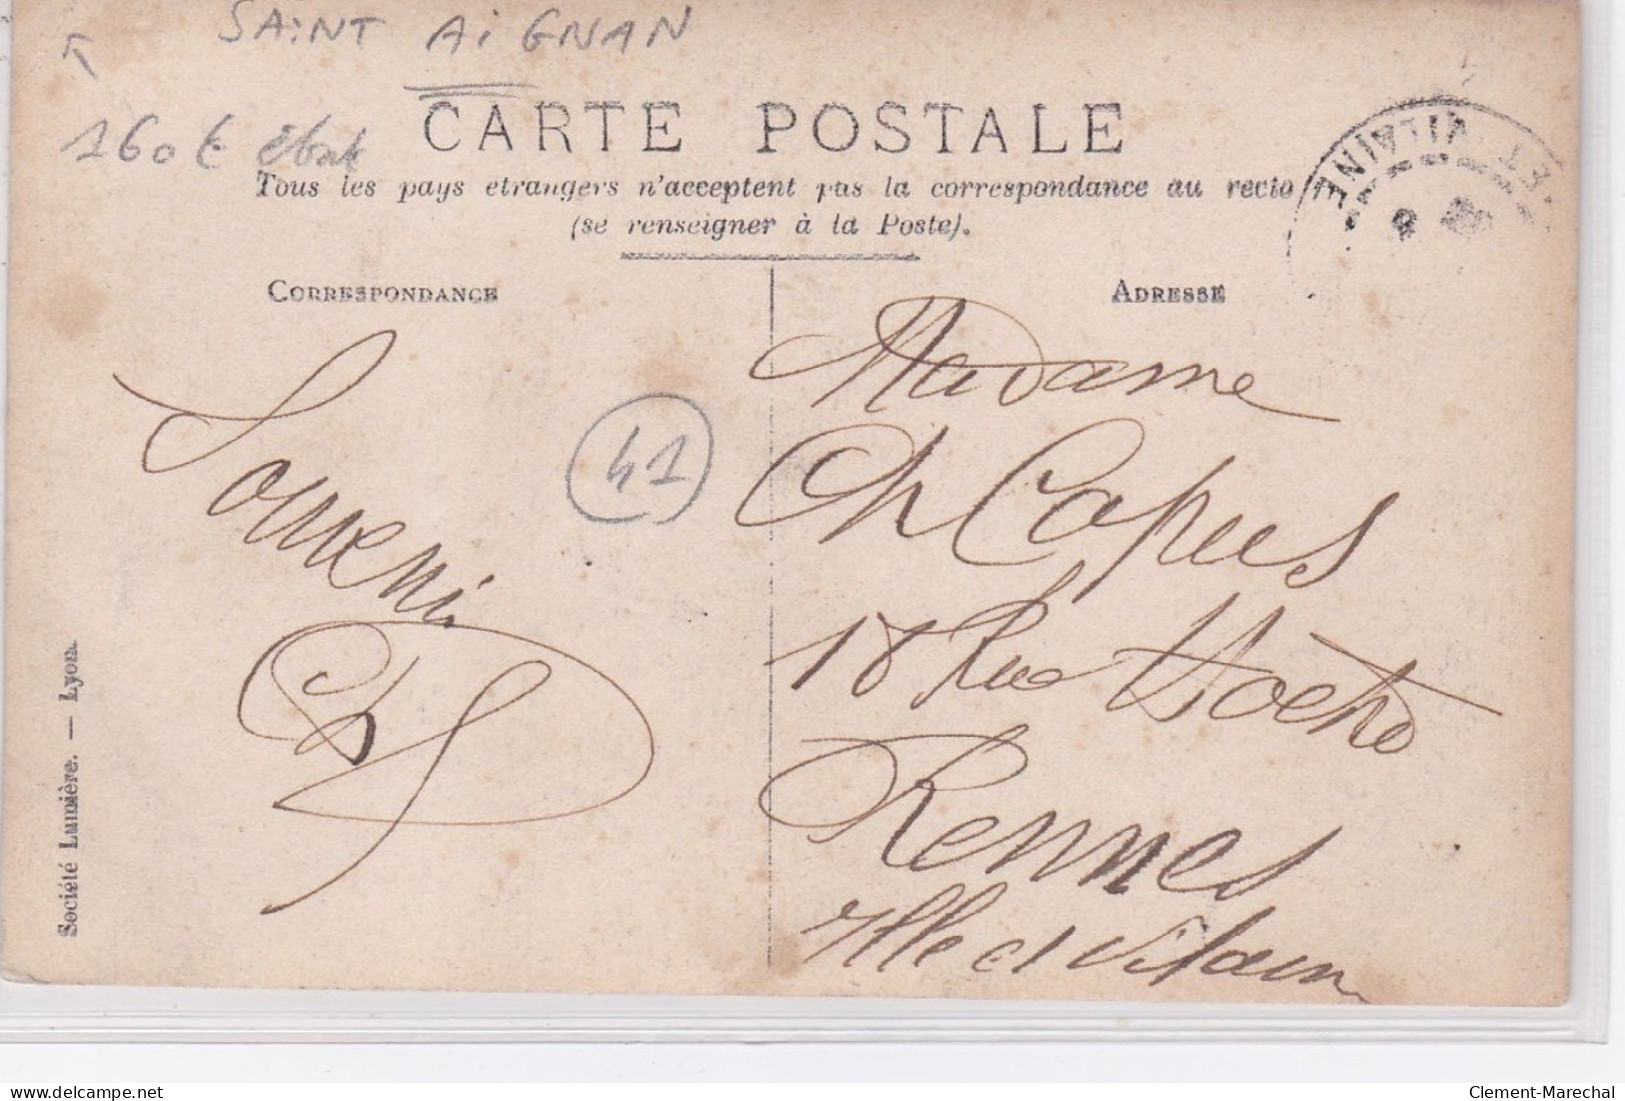 SAiNT AiGNAN
160 €
CARTE POSTALE
Tous les pays etrangers n'acceptent pas la correspondance au recto
(se renseigner à la Poste).
ET VILAINE
CORRESPONDANCE
ADRESSE
Souvenir
41
Madame
Ch Capus
18 Rue Hoche
Rennes
Ille et Vilaine
Société Lumière. — Lyon.
www.delcampe.net
Clement-Marechal